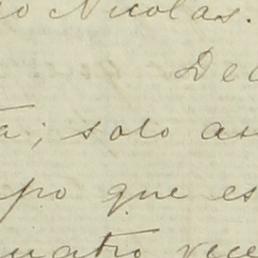 o Nicolas.
De
a; solo as
po que es
uatro vece